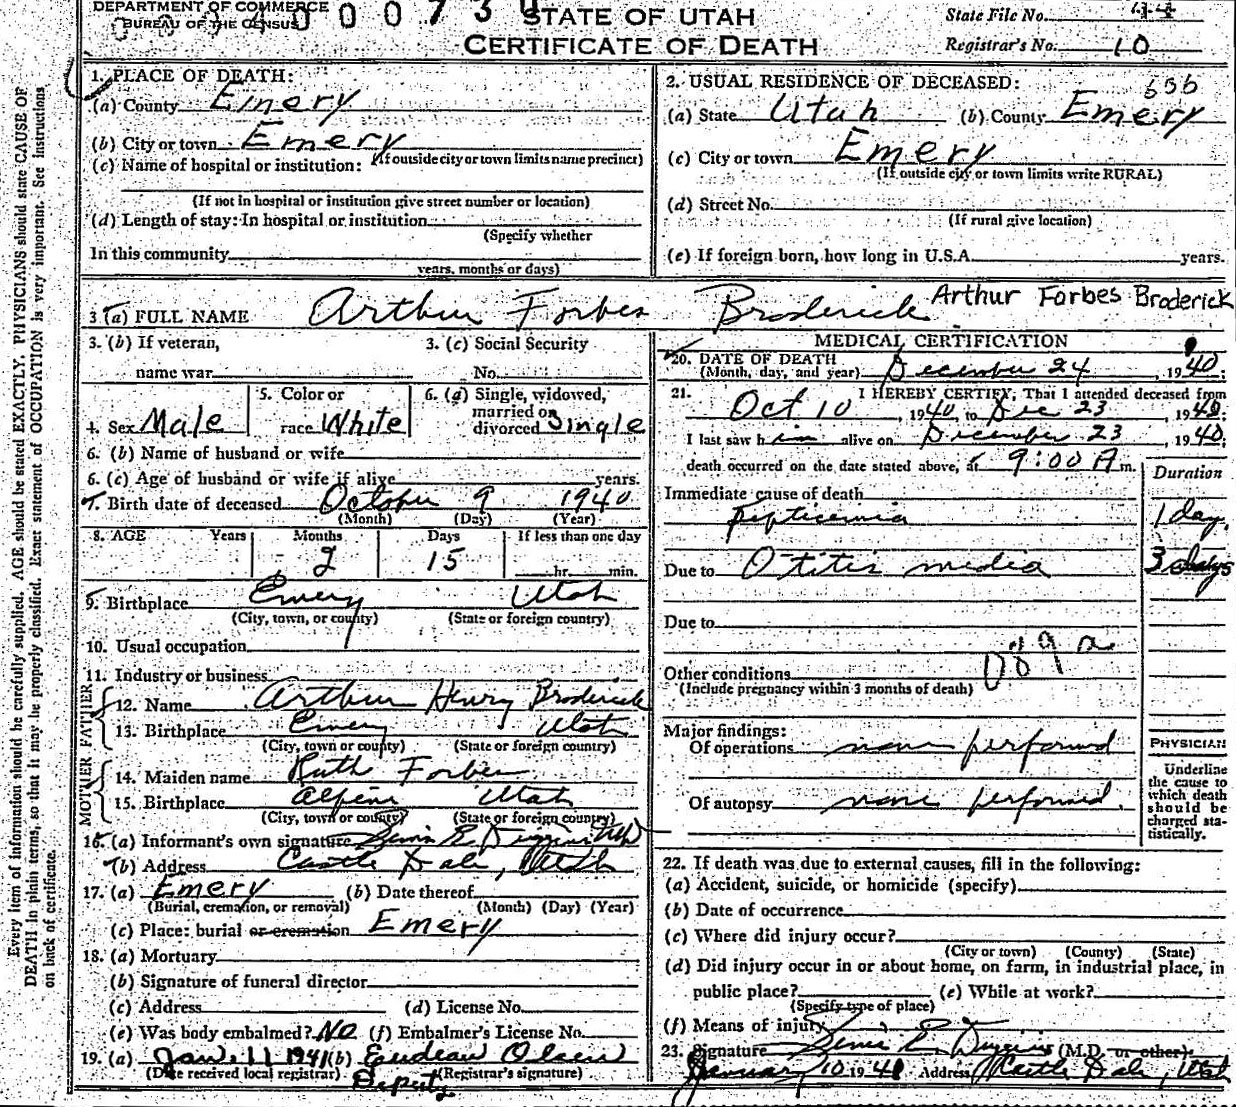 DEPARTMENT OF COMMERCE
BUREAU OF THE CENSUS
STATE OF UTAH
CERTIFICATE OF DEATH
State File No.
Registrar's No. 10
Every item of information should be carefully supplied. AGE should be stated EXACTLY. PHYSICIANS should state CAUSE OF
DEATH in plain terms, so that it may be properly classified. Exact statement of OCCUPATION is very important. See instructions
on back of certificate.
1. PLACE OF DEATH:
(a) County Emery
(b) City or town Emery
(If outside city or town limits name precinct)
(c) Name of hospital or institution:
(If not in hospital or institution give street number or location)
(d) Length of stay: In hospital or institution
(Specify whether
In this community
years, months or days)
2. USUAL RESIDENCE OF DECEASED: 656
(a) State Utah (b) County Emery
(c) City or town Emery
(If outside city or town limits write RURAL)
(d) Street No.
(If rural give location)
(e) If foreign born, how long in U.S.A. years.
3 (a) FULL NAME Arthur Forbes Broderick Arthur Forbes Broderick
3. (b) If veteran, 3. (c) Social Security
name war No.
4. Sex Male 5. Color or race White 6. (a) Single, widowed, married or divorced Single
6. (b) Name of husband or wife
6. (c) Age of husband or wife if alive years.
7. Birth date of deceased October 9 1940
(Month) (Day) (Year)
8. AGE Years Months Days If less than one day
2 15 hr. min.
9. Birthplace Emery Utah
(City, town, or county) (State or foreign country)
10. Usual occupation
11. Industry or business
FATHER
12. Name Arthur Henry Broderick
13. Birthplace Emery Utah
(City, town or county) (State or foreign country)
MOTHER
14. Maiden name Ruth Forbes
15. Birthplace Alpine Utah
(City, town or county) (State or foreign country)
16. (a) Informant's own signature
(b) Address Castle Dale, Utah
17. (a) Emery (b) Date thereof
(Burial, cremation, or removal) (Month) (Day) (Year)
(c) Place: burial or cremation Emery
18. (a) Mortuary
(b) Signature of funeral director
(c) Address (d) License No.
(e) Was body embalmed? No (f) Embalmer's License No.
19. (a) Jan. 11 1941 (b) Olsen
(Date received local registrar) (Registrar's signature)
Deputy
MEDICAL CERTIFICATION
20. DATE OF DEATH
(Month, day, and year) December 24, 1940;
21. I HEREBY CERTIFY, That I attended deceased from
Oct 10, 1940 to Dec 23 1940;
I last saw him alive on December 23, 1940;
death occurred on the date stated above, at 9:00 A m.
Duration
Immediate cause of death
Septicemia 1 day
Due to Otitis media 3 days
Due to
089a
Other conditions
(Include pregnancy within 3 months of death)
Major findings:
Of operations none performed
Of autopsy none performed.
PHYSICIAN
Underline
the cause to
which death
should be
charged sta-
tistically.
22. If death was due to external causes, fill in the following:
(a) Accident, suicide, or homicide (specify)
(b) Date of occurrence
(c) Where did injury occur?
(City or town) (County) (State)
(d) Did injury occur in or about home, on farm, in industrial place, in
public place? (e) While at work?
(Specify type of place)
(f) Means of injury
23. Signature (M.D. or other)
January 10 1941 Address Castle Dale, Utah